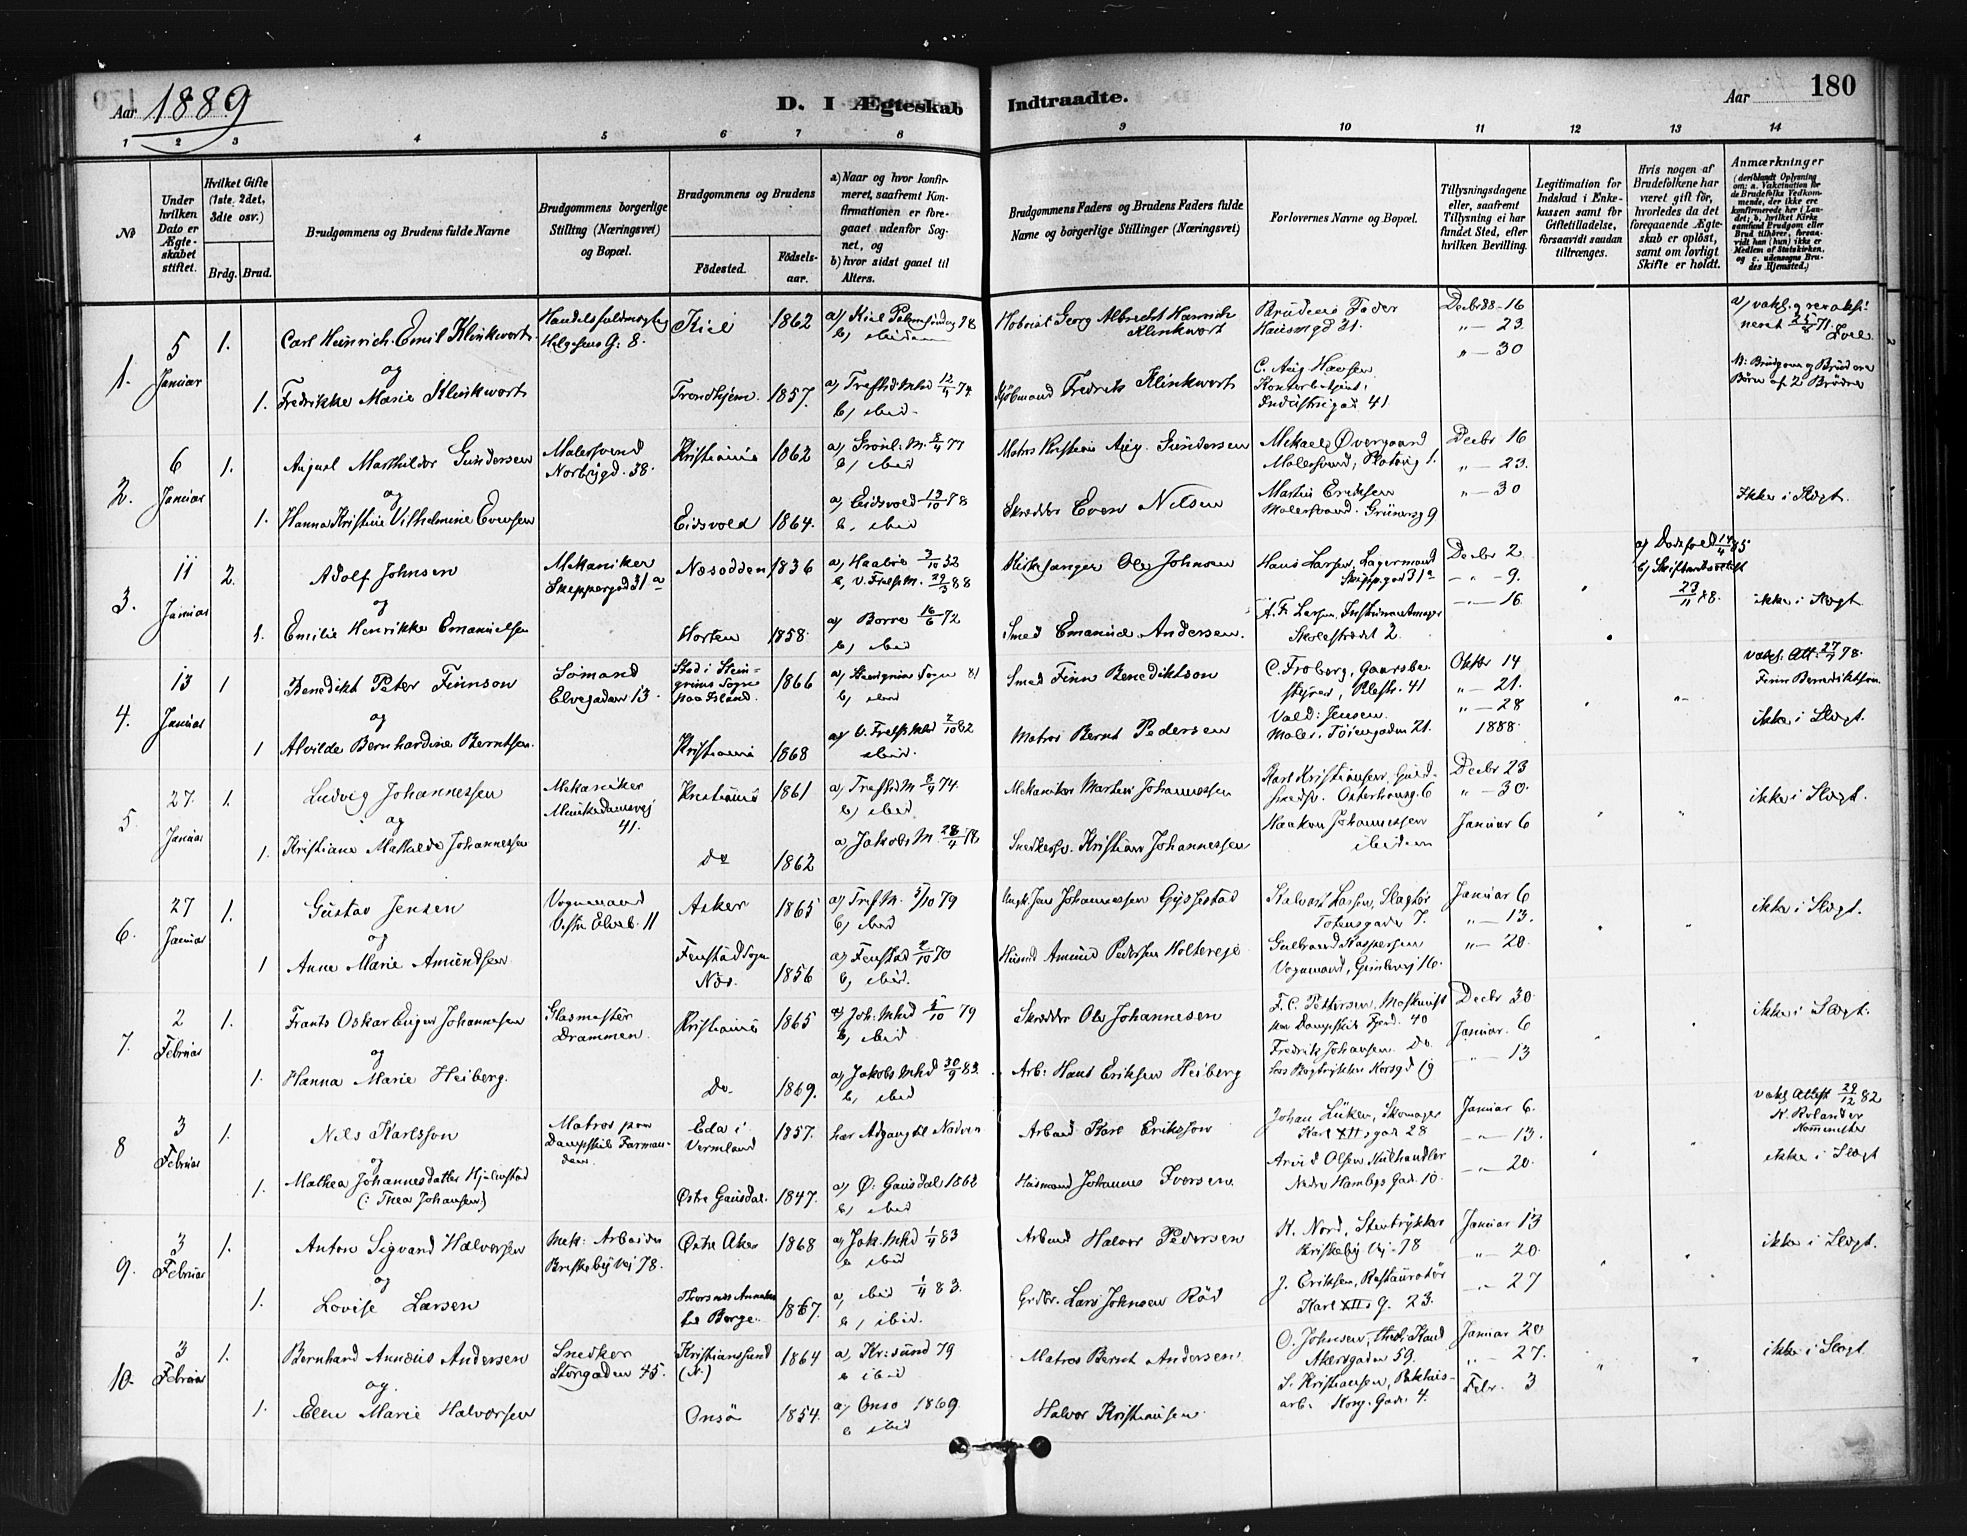 Aar 1889
D. I Ægteskab Indtraadte.
Aar
180
1 2 3 4 5 6 7 8 9 10 11 12 13 14
No
Under hvilken Dato er Ægteskabet stiftet.
Hvilket Gifte (1ste, 2det, 3dte osv.)
Brdg. Brud.
Brudgommens og Brudens fulde Navne
Brudgommens borgerlige Stilling (Næringsvei) og Bopæl.
Brudgommens og Brudens
Fødested.
Fødselsaar.
a) Naar og hvor konfirmeret, saafremt Konfirmationen er foregaaet udenfor Sognet, og
b) hvor sidst gaaet til Alters.
Brudgommens Faders og Brudens Faders fulde Navne og borgerlige Stillinger (Næringsvei)
Forlovernes Navne og Bopæl.
Tillysningsdagene eller, saafremt Tillysning ei har fundet Sted, efter hvilken Bevilling.
Legitimation for Indskud i Enkekassen samt for Giftetilladelse, forsaavidt saadan tiltrænges.
Hvis nogen af Brudefolkene har været gift før, hvorledes da det foregaaende Ægteskab er opløst, samt om lovligt Skifte er holdt.
Anmærkninger (deriblandt Oplysning om: a. Vakcination for de Brudefolks Vedkommende, der ikke ere konfirmerede her i Landet; b. hvilket Kirkesamfund Brudgom eller Brud tilhører, forsaavidt han (hun) ikke er Medlem af Statskirken, og c. udensogns Brudes Hjemsted.)
1. 5 Januar 1. Carl Heinrich Emil Klinkwort Helgesens G: 8. Kiel 1862 a) Kiel 78 b) ibidem
Georg Albrecht Heinrich Klinkwort
Brudens Fader
Decbr 88 - 16
" - 23
" - 30
og
1. Fredrikke Marie Klinkwort Trondhjem 1857. a) Trefld. Mhd 12/4 74. b) ibid.
Kjøbmand Fredrik Klinkwort
C. Aug Hansen
Industrigad. 41
N: Brudgom og Brud ere Børn af 2 Brødre
2. 6 Januar 1. August Marthildor Gundersen Malersvend Norbygd. 38. Kristiania 1862 a) Grønl. M. 8/4 77 b) ibid
Gundersen
Mikael Øvergaard Malersvend,
Decbr 16
" - 23.
" - 30
og
1. Hanna Kristine Vilhelmine Evensen Eidsvold 1864. a) Eidsvold 13/10 78 b, ibid
Skrædder Even Nilsen
Martin Eriksen Malersvend. Grünersg 9
Ikke i Slægt.
3. 11 Januar 2. Adolf Johnsen Mekaniker Skippergad 31 a Næsodden 1836 b, V. Frelss M. 88
Kirkesanger Ole Johnsen
Hans Larsen, Lagermand Skippgad 31 a
Decbr 2
" - 9.
" - 16
23/11 88.
og
1. Emilie Henrikke Emanuelsen Horten 1858. a) Borre 16/6 72 b) ibid
Smed Emanuel Andersen.
Skolestrædet 2.
ikke i Slægt
4. 13 Januar 1 Benedikt Peter Finnson Sømand Elvegaden 13. paa Island. 1866
Smed Finn Benediktson
C. Froberg, Gaardsbestyrer, Pilestr. 41
Oktbr 14
" - 21.
" - 28
1888.
vakc. Att. 27/7 78.
Finn Benediktsen
og
1 Alvilde Bernhardine Berntsen. Kristiania 1868 a) V. Frelss Mhd 2/10 82 ibid.
Matros Bernt Pedersen
Vald: Jensen. Maler. Tøiengaden 21.
ikke i Slægt.
5. 27 Januar 1. Ludvig Johannessen Mekaniker Munkedamsvej 41. Kristiania 1861 a) Trefld M 8/4 74. b) ibid
Mekaniker Martin Johannessen
Karl Kristiansen, Guldsmedsv. Osterhausg. 6
Decbr 23
" - 30.
Januar 6
ikke i Slægt.
og
1. Kristiane Mathilde Johannessen Do 1862 a) Jakobs M. 28/4 78
Snedkersv. Kristian Johannessen
Haakon Johannessen ibidem
6. 27 Januar 1. Gustav Jensen Vognmand Vestre Elveb. 11 Asker 1865 a) Tref M. 5/10 79 b) ibid
Jens Johannessen Gyssestad
Halvor Larsen, Slagter Totensgaden 7.
Januar 6
" - 13.
" - 20.
ikke i Slægt.
og
1 Anne Marie Amundsen Fenstad Sogn Nes. 1856 a) Fenstad 2/10 70 b, ibid.
Husmd Amund Pedersen Holtereje
Gulbrand Kaspersen Vognmand, Grinilvej 16.
7. 2 Februar 1. Frants Oskar Eugen Johannesen Glasmester Drammen. Kristiania 1865 a) Joh: Mhd 5/10 79 b, ibid
Skrædder Ole Johannesen
F. C. Pettersen, Maskinist paa Dampskib Fjord. 40
Decbr 30
Januar 6
" - 13
ikke i Slægt.
og
1. Hanna Marie Heiberg. Do. 1869. a) Jakobs Mhd 30/9 83. b, ibid
Arb: Hans Eriksen Heiberg
Fredrik Johansen Do. Korsgd 19
8 3 Februar 1. Nils Karlsson Matros paa Dampskib Farmanden Eda i Vermland 1857. har Adgang til Nadveren
Arbmd Karl Eriksson
Johan Lüken, Skomager Karl XIIs gad 28
Januar 6.
" - 13.
" - 20.
vakc Attest 29/12 82
og
1. Mathea Johannesdatter Hjelmstad (: Thea Johansen) Østre Gausdal. 1847. a) Ø. Gausdal 1862 b, ibid
Husmand Johannes Iversen.
Arvid Olsen Kulhandler Nedre Hambgs Gad. 10.
ikke i Slægt
9. 3 Februar 1. Anton Sigvard Halvorsen Mek: Arbeider Briskebyvej 78. Østre Aker 1868 a) Jak. Mhd 1/4 83 b ibid
Arbmd Halvor Pedersen
K. Nord, Stentrykker Briskeby Vej 78
Januar 13
" - 20.
" - 27
ikke i Slægt.
og
1. Lovise Larsen Borge. 1867. a, ibid 1/4 83. b, ibid.
Grdbr. Lars Johnsen Rød
J. Eriksen, Restauratør Karl XIIs g. 23.
10. 3 Februar 1. Bernhard Annæus Andersen Snedker Storgaden 45. Kristianssund (N.) 1864 a, Kr: sund 79 b ibid
Matros Bernt Andersen
O. Johnsen, theol. Kand Akersgaden 59.
Januar 20
" - 27.
Febr. 3
ikke i Slægt.
og.
1. Elen Marie Halvorsen Onsø 1854. a, Onsø 1869 b ibid
Halvor Kristiansen
S. Kristiansen, Pakhusarb. Korsg. Gad. 4.